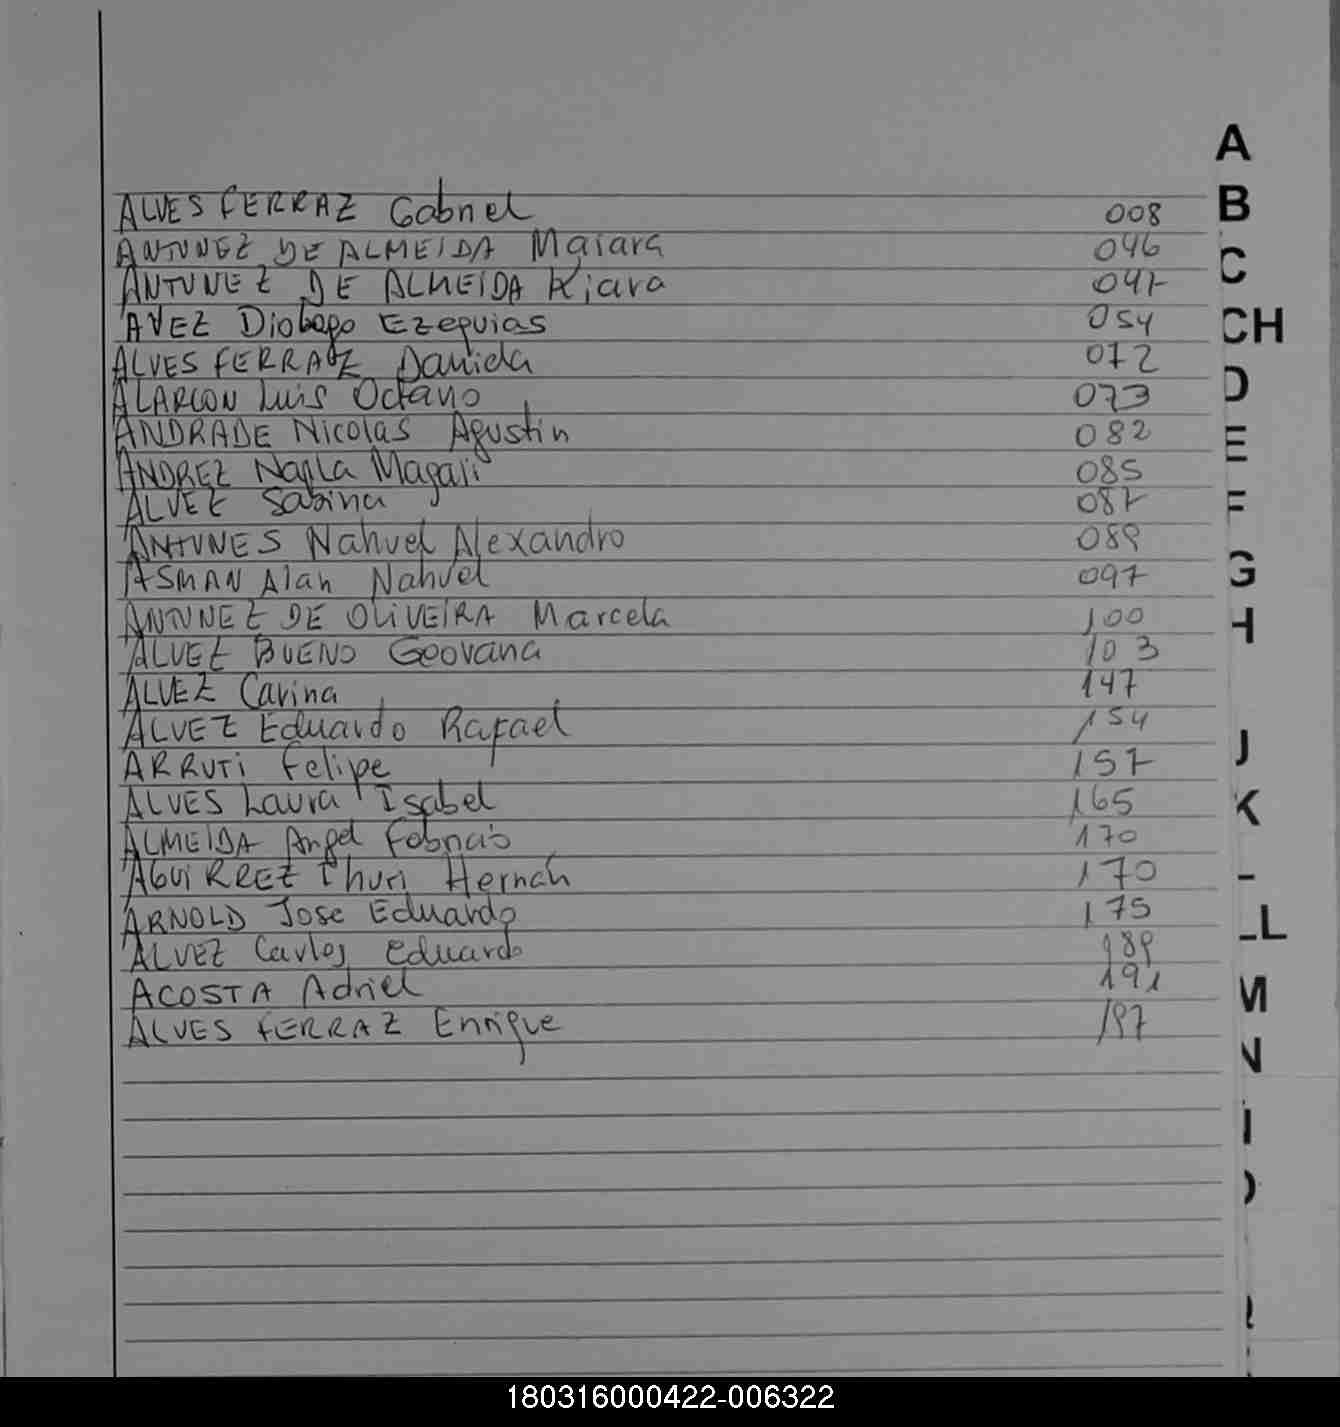 ALVES FERRAZ Gabriel 008
ANTUNEZ DE ALMEIDA Maiara 046
ANTUNEZ DE ALMEIDA Kiara 047
AVEZ Diobego Ezequias 054
ALVES FERRAZ Daniela 072
ALARCON Luis Octavio 073
ANDRADE Nicolas Agustin 082
ANDREZ Nayla Magali 085
ALVEZ Sabina 087
ANTUNES Nahuel Alexandro 089
ASMAN Alan Nahuel 097
ANTUNEZ DE OLIVEIRA Marcela 100
ALVEZ BUENO Geovana 103
ALVEZ Carina 147
ALVEZ Eduardo Rafael 154
ARRUTI Felipe 157
ALVES Laura Isabel 165
ALMEIDA Angel Fabricio 170
AGUIRREZ Hernán 170
ARNOLD Jose Eduardo 175
ALVEZ Carlos Eduardo 189
ACOSTA Adriel 191
ALVES FERRAZ Enrique 197
A
B
C
CH
D
E
F
G
H
J
K
L
LL
M
N
180316000422-006322